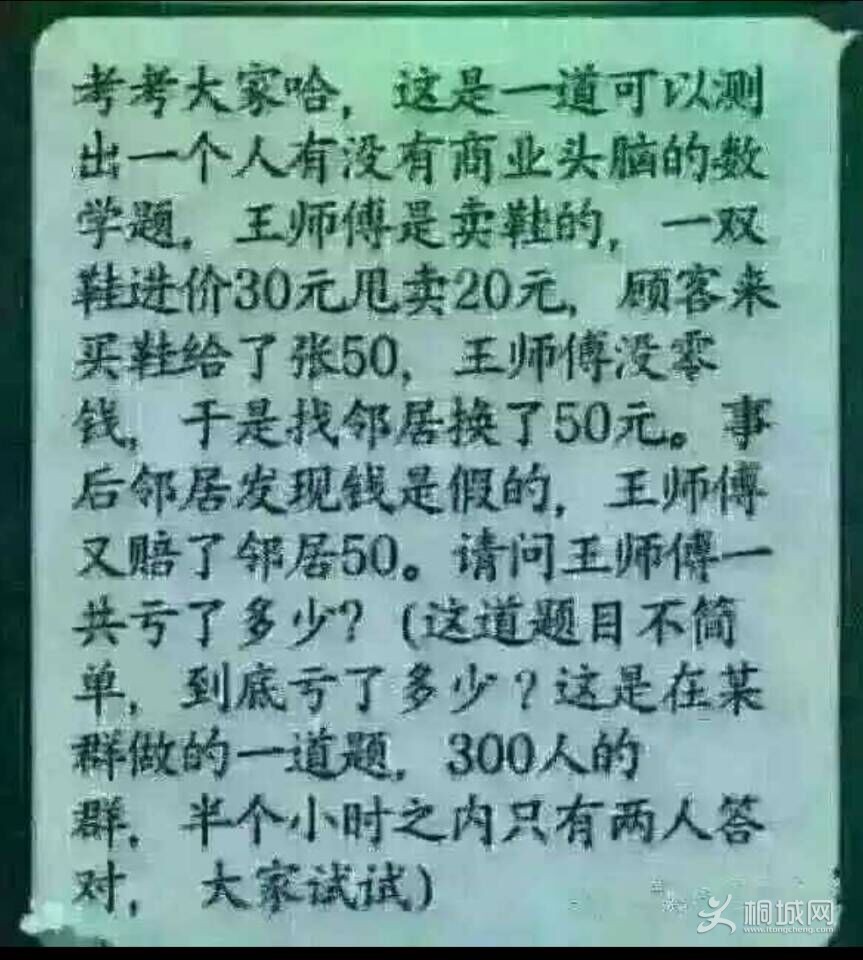 考考大家哈，这是一道可以测
出一个人有没有商业头脑的数
学题，王师傅是卖鞋的，一双
鞋进价30元甩卖20元，顾客来
买鞋给了张50，王师傅没零
钱，于是找邻居换了50元。事
后邻居发现钱是假的，王师傅
又赔了邻居50。请问王师傅一
共亏了多少？(这道题目不简
单，到底亏了多少？这是在某
群做的一道题，300人的
群，半个小时之内只有两人答
对，大家试试)
桐城网
www.itongcheng.com